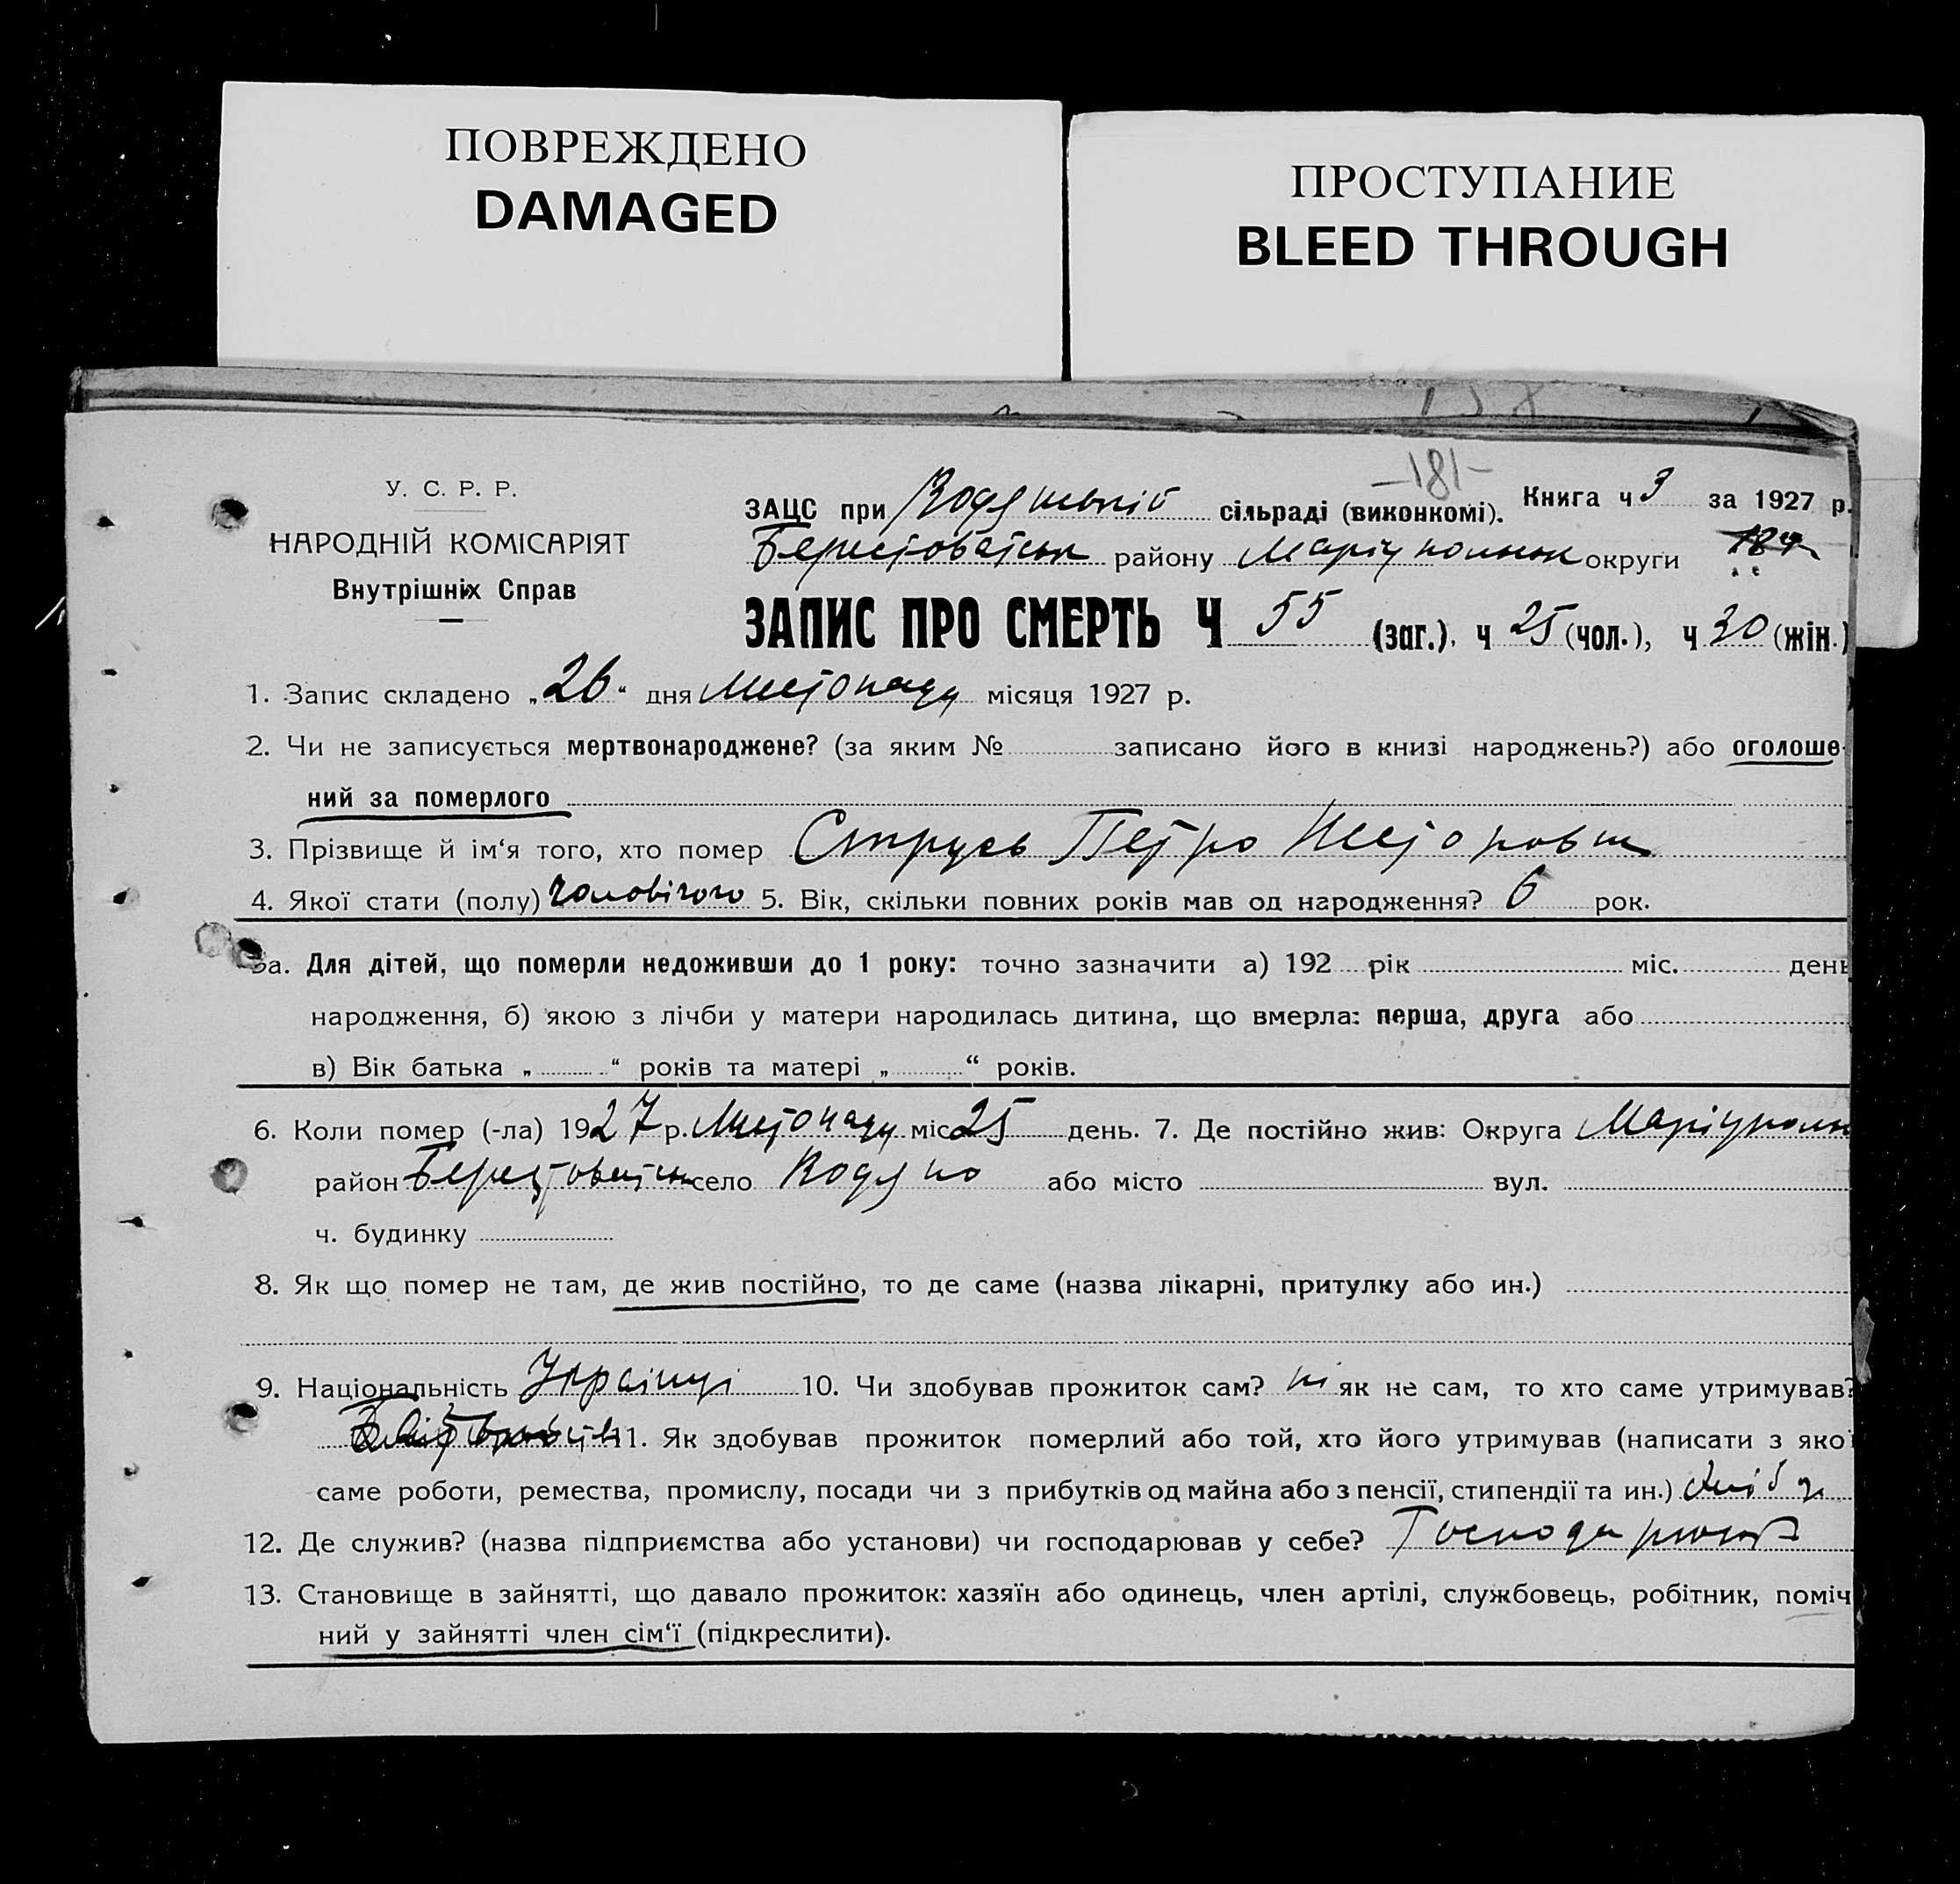 ПОВРЕЖДЕНО
DAMAGED
ПРОСТУПАНИЕ
BLEED THROUGH
-181-
У. С. Р. Р.
НАРОДНІЙ КОМІСАРІЯТ
Внутрішніх Справ
ЗАЦС при Водяньній сільраді (виконкомі). Книга ч 3 за 1927 р.
Берестоватськ району Маріупольськ округи
ЗАПИС ПРО СМЕРТЬ Ч 55 (заг.), ч 25 (чол.), ч 30 (жін.)
1. Запис складено „26“ дня Листопаду місяця 1927 р.
2. Чи не записується мертвонароджене? (за яким № записано його в книзі народжень?) або оголоше-
ний за померлого
3. Прізвище й ім‘я того, хто помер Струсь Петро
4. Якої стати (полу) чоловічого 5. Вік, скільки повних років мав од народження? 6 рок.
5а. Для дітей, що померли недоживши до 1 року: точно зазначити а) 192 рік міс. день
народження, б) якою з лічби у матери народилась дитина, що вмерла: перша, друга або
в) Вік батька „ “ років та матері „ “ років.
6. Коли помер (-ла) 1927 р. Листопаду міс. 25 день. 7. Де постійно жив: Округа Маріуполь
район Берестоватськ село Водяно або місто вул.
ч. будинку
8. Як що помер не там, де жив постійно, то де саме (назва лікарні, притулку або ин.)
9. Національність Українці 10. Чи здобував прожиток сам? ні як не сам, то хто саме утримував?
11. Як здобував прожиток померлий або той, хто його утримував (написати з якої
саме роботи, ремества, промислу, посади чи з прибутків од майна або з пенсії, стипендії та ин.)
12. Де служив? (назва підприємства або установи) чи господарював у себе?
13. Становище в зайнятті, що давало прожиток: хазяїн або одинець, член артілі, службовець, робітник, поміч
ний у зайнятті член сім‘ї (підкреслити).